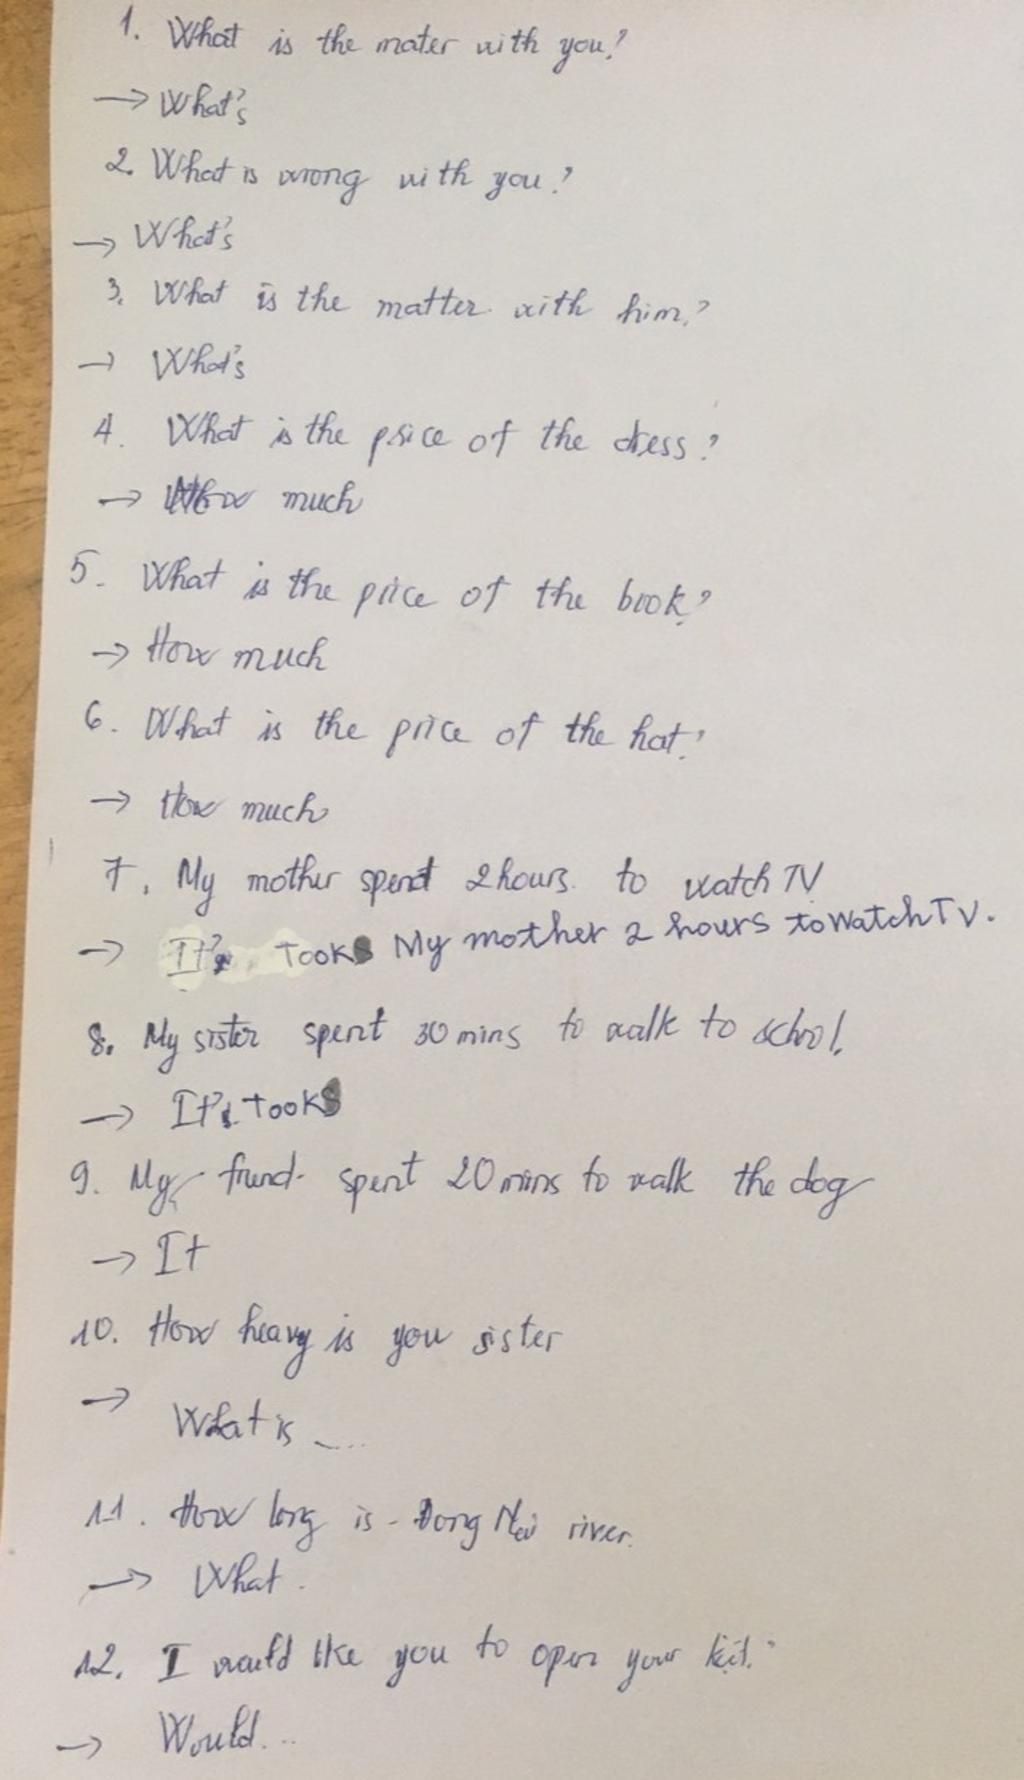 1. What is the mater with you?
→ What's
2. What is wrong with you?
→ What's
3. What is the matter with him?
→ What's
4. What is the price of the dress?
→ How much
5. What is the price of the book?
→ How much
6. What is the price of the hat?
→ How much
7. My mother spent 2 hours to watch TV
→ It Took My mother 2 hours to Watch TV.
8. My sister spent 30 mins to walk to school.
→ It Took
9. My friend spent 20 mins to walk the dog
→ It
10. How heavy is you sister
→
What is ....
11. How long is Dong Nai river.
→ What.
12. I would like you to open your
→ Would...